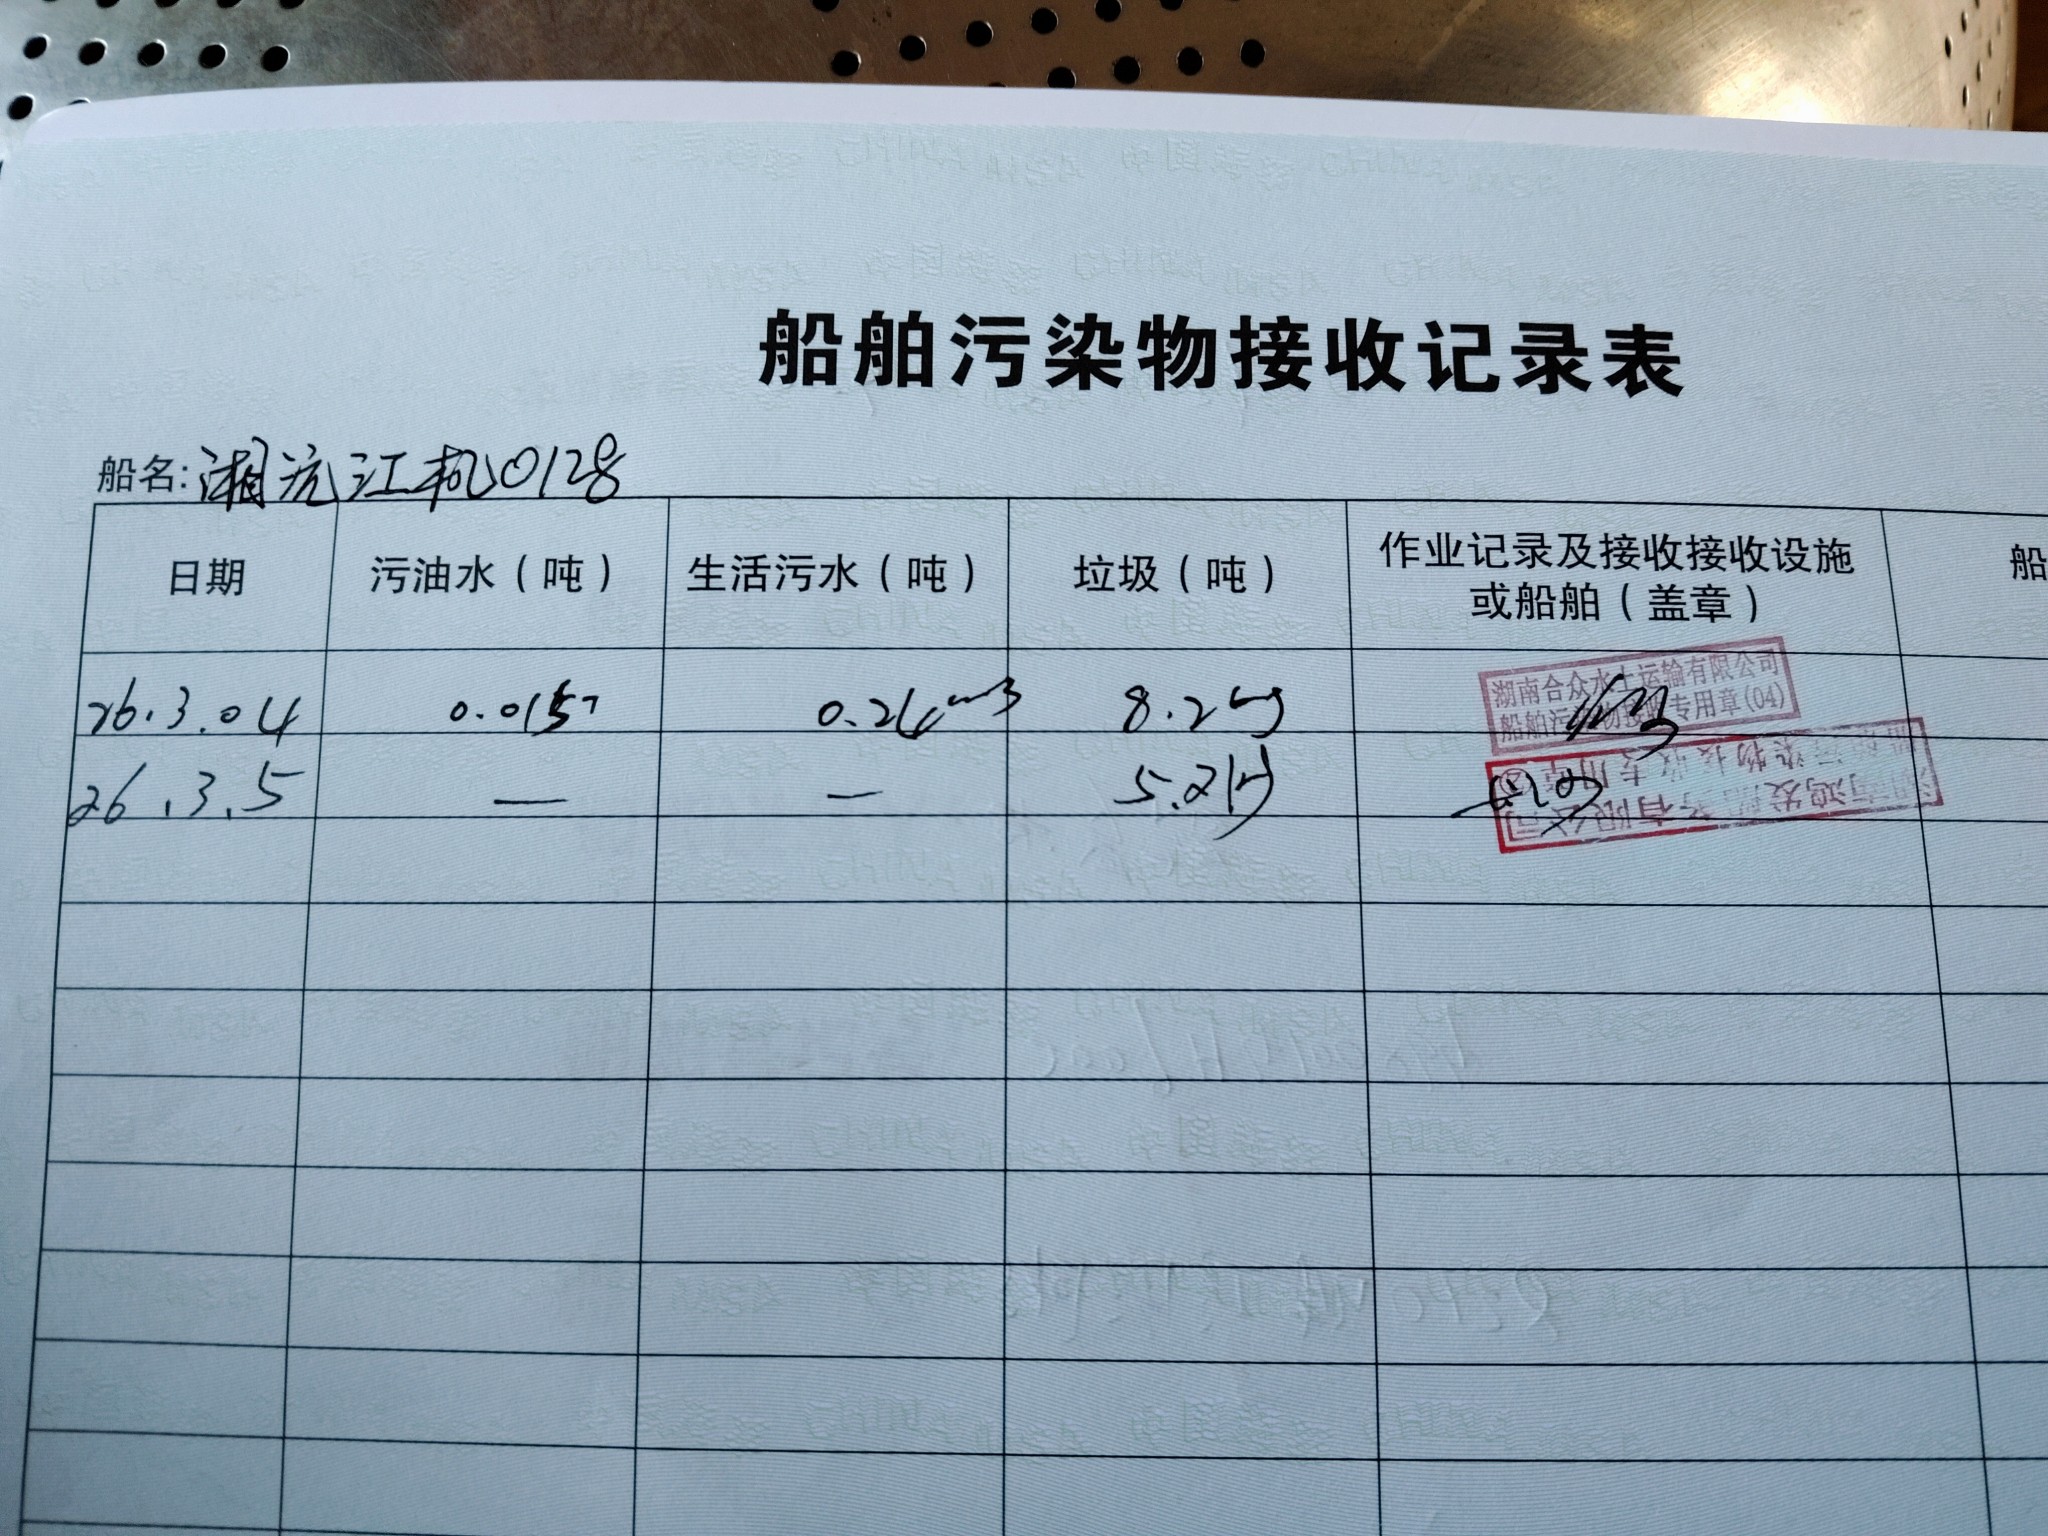 船舶污染物接收记录表
船名:湘沅江机0128
日期 污油水（吨） 生活污水（吨） 垃圾（吨） 作业记录及接收接收设施或船舶（盖章） 船
26.3.04 0.015T 0.26m3 8.2kg
湖南合众水上运输有限公司
船舶污染物接收专用章(04)
26.3.5 — — 5.2kg
船舶污染物接收专用章